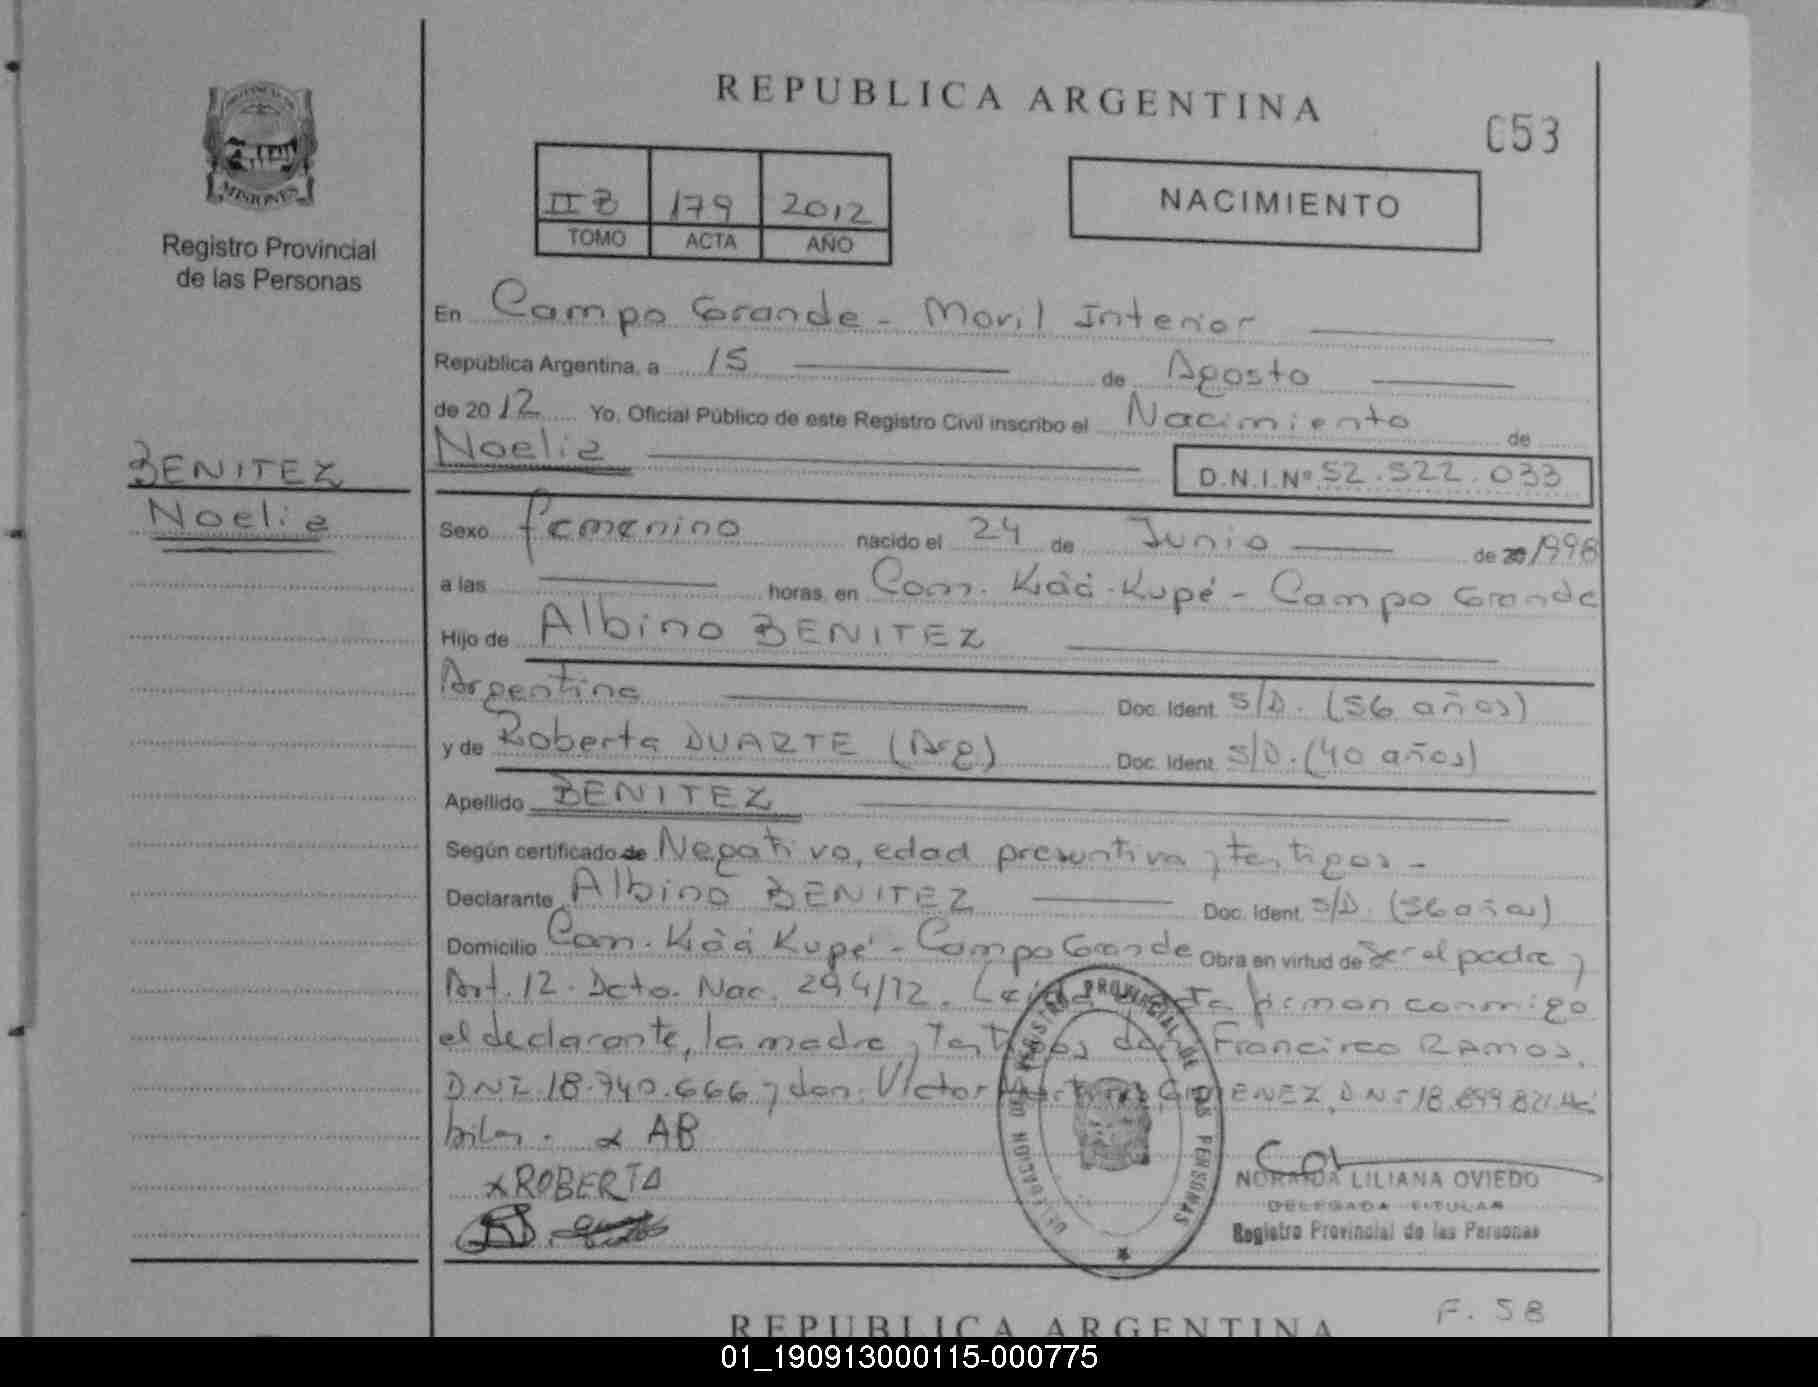 REPUBLICA ARGENTINA
C53
PROVINCIA DE
MISIONES
Registro Provincial
de las Personas
II B 179 2012
TOMO ACTA AÑO
NACIMIENTO
En Campo Grande - Movil Interior
República Argentina, a 15 de Agosto
de 2012 Yo, Oficial Público de este Registro Civil inscribo el Nacimiento de
Noelia
D.N.I.Nº 52.522.033
BENITEZ
Noelia
Sexo femenino nacido el 24 de Junio de 20 1998
a las horas, en Com. Kaá-Kupé - Campo Grande
Hijo de Albino BENITEZ
Argentina Doc. Ident. S/D. (56 años)
y de Roberta DUARTE (Arg) Doc. Ident. S/D. (40 años)
Apellido BENITEZ
Según certificado de Negativo, edad presuntiva y testigos -
Declarante Albino BENITEZ Doc. Ident. S/D. (56 años)
Domicilio Com. Kaá Kupé - Campo Grande Obra en virtud de Ser el padre y
Art. 12. Dcto. Nac. 294/72. Leída acta firman conmigo
el declarante, la madre, testigos don Francisco RAMOS,
DNI 18.740.666 y don Victor GIMENEZ, DNI 18.899.821 Há-
biles. x AB
x ROBERTA
DELEGACION REGISTRO PROVINCIAL DE LAS PERSONAS
NORAIDA LILIANA OVIEDO
DELEGADA TITULAR
Registro Provincial de las Personas
F. 58
REPUBLICA ARGENTINA
01_190913000115-000775